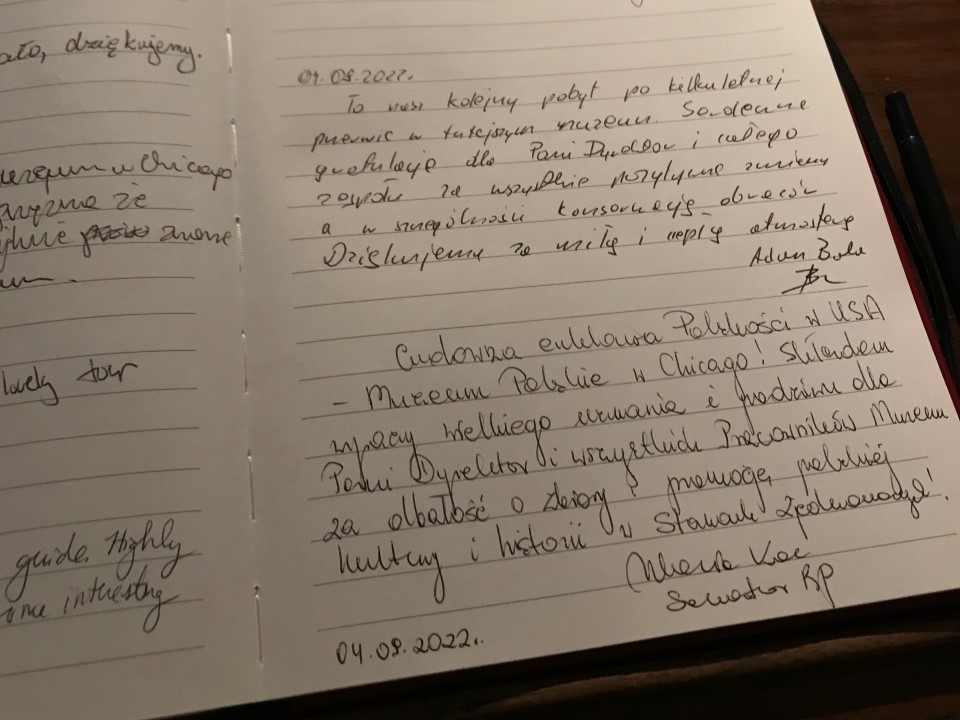 ało, dziękujemy.
w Chicago
że
znane
lovely tour
guide. Highly
interesting
04.09.2022.
To nasz kolejny pobyt po kilkuletniej
przerwie w tutejszym muzeum. Serdeczne
gratulacje dla Pani Dyrektor i całego
zespołu za wszystkie pozytywne zmiany
a w szczególności konserwację obrazów
Dziękujemy za miłą i ciepłą atmosferę
Adam
Cudowna enklawa Polskości w USA
– Muzeum Polskie w Chicago! Składam
wyrazy wielkiego uznania i podziwu dla
Pani Dyrektor i wszystkich Pracowników Muzeum
za dbałość o zbiory i promocję polskiej
kultury i historii w Stanach Zjednoczonych!
Senator RP
04.09.2022..